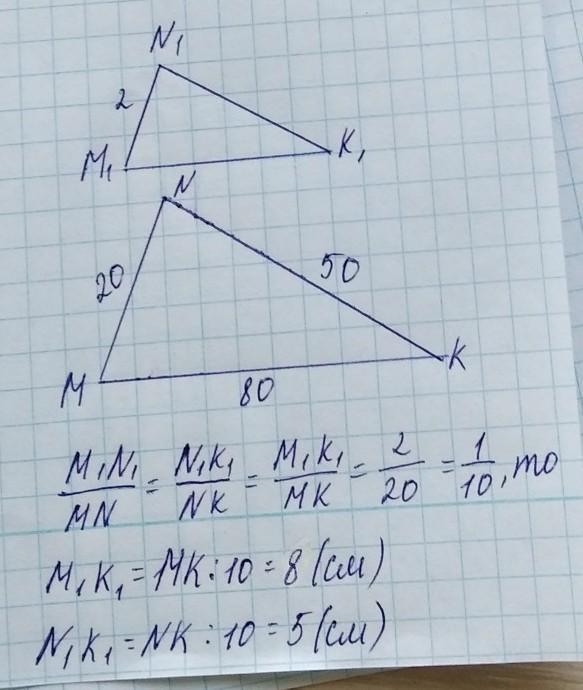 N₁
2
M₁
K₁
N
20
50
M
K
80
M₁N₁/MN = N₁K₁/NK = M₁K₁/MK = 2/20 = 1/10, то
M₁K₁ = MK : 10 = 8 (см)
N₁K₁ = NK : 10 = 5 (см)